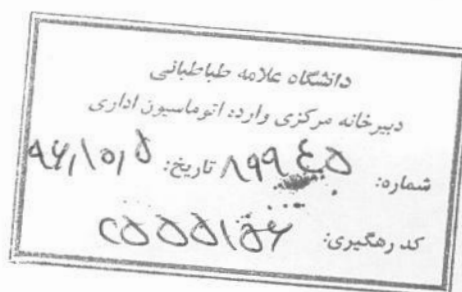 دانشگاه علامه طباطبائی
دبیرخانه مرکزی وارد: اتوماسیون اداری
شماره: ۸۹۹۴۵ تاریخ: ۹۶/۱۰/۵
کد رهگیری: ۲۵۵۵۱۵۶